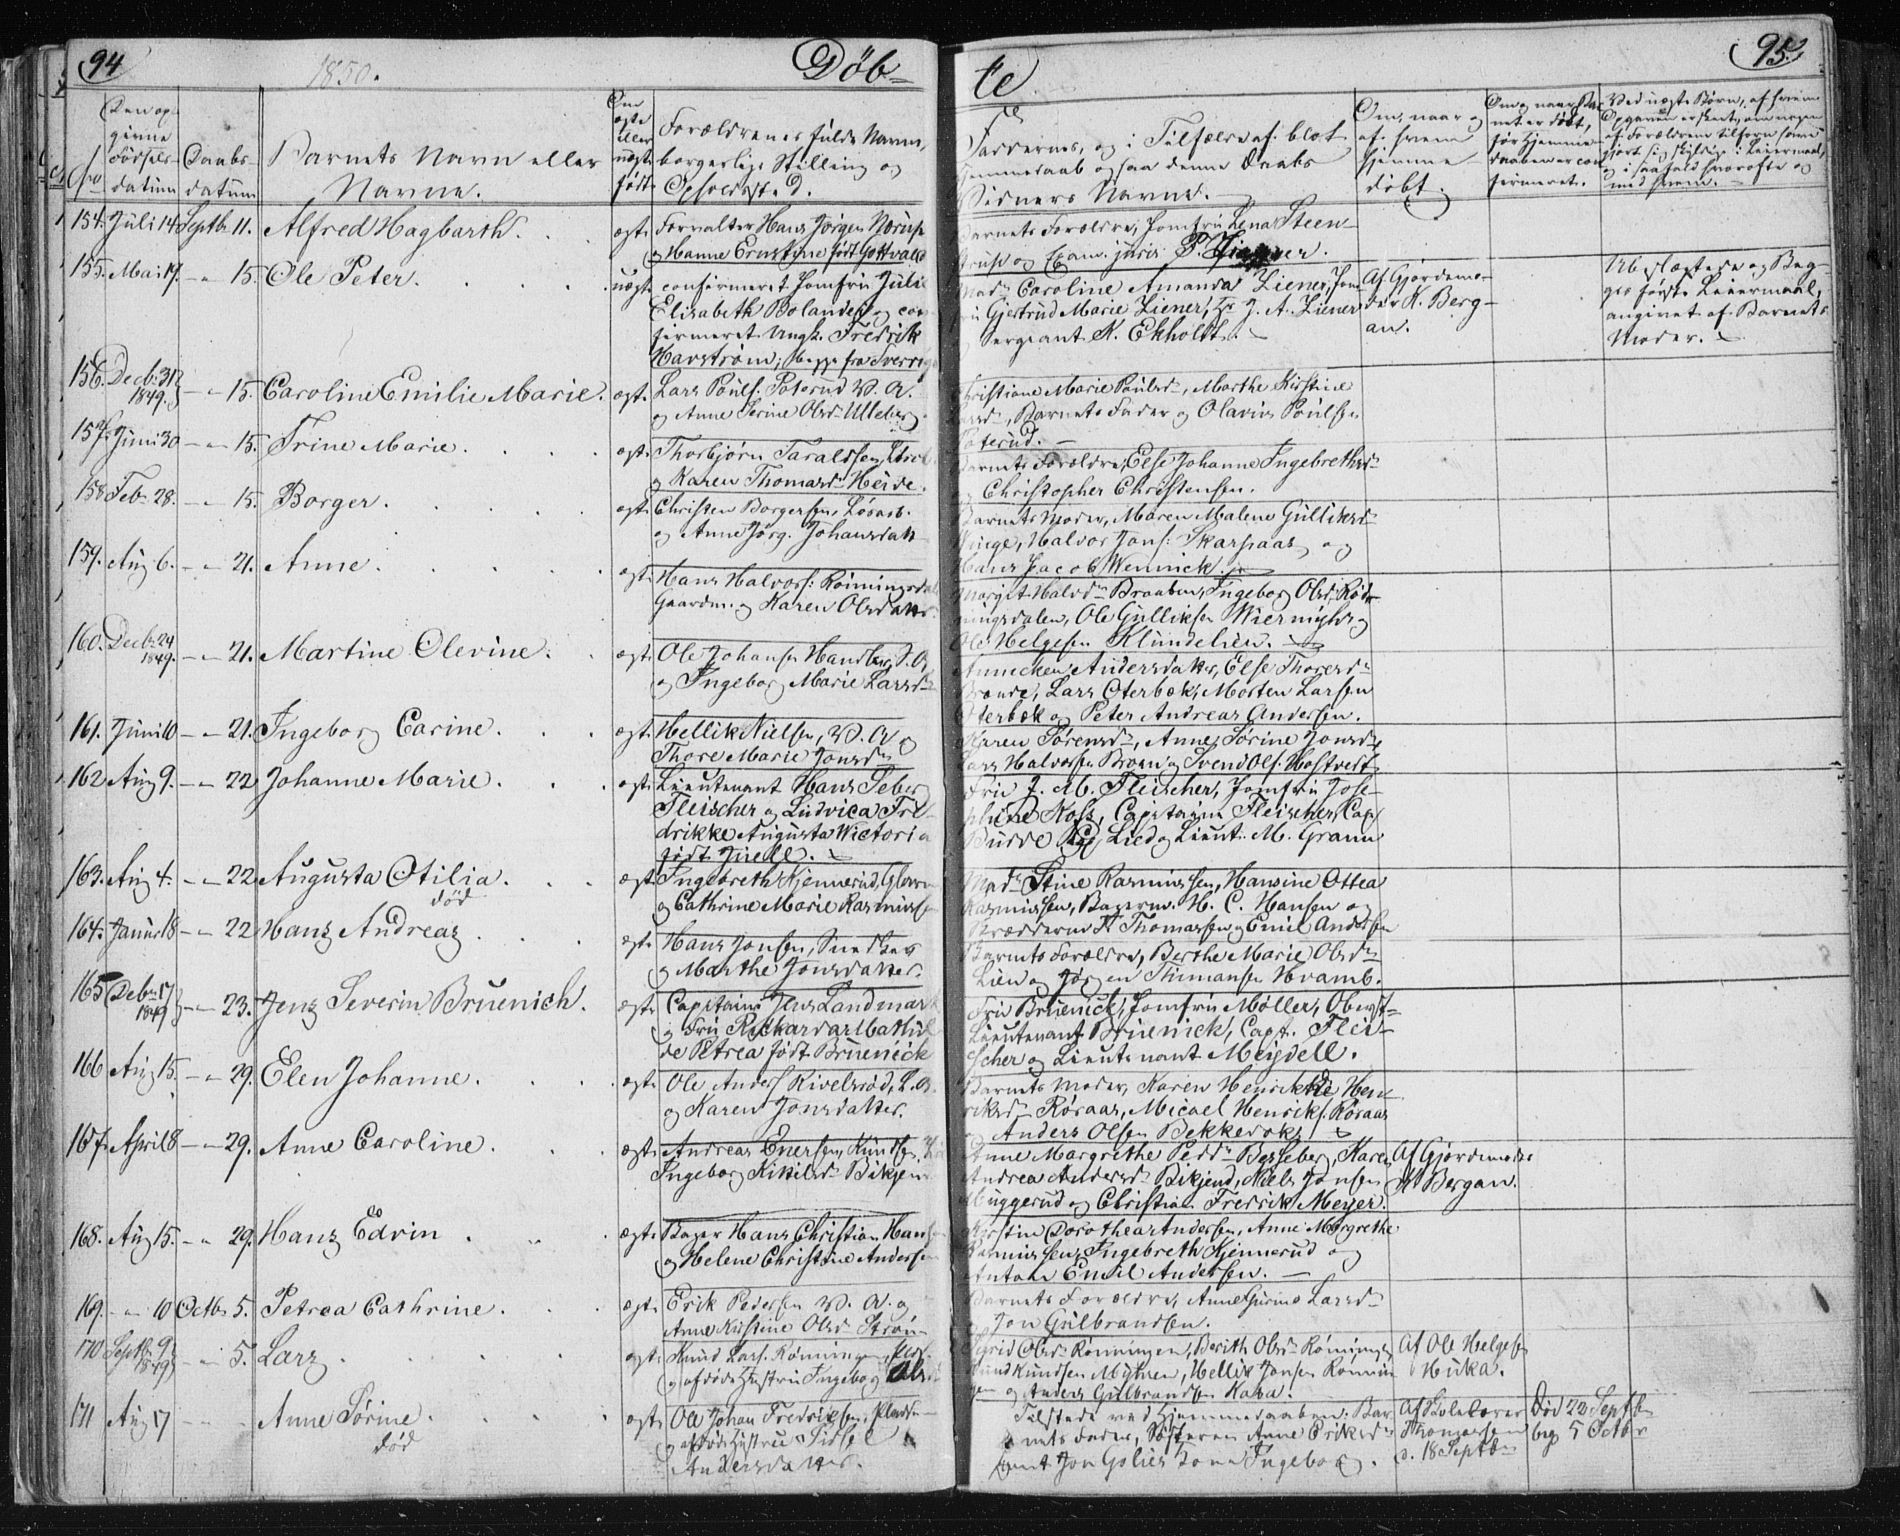 94
1850.
Döb-
te
95.
Den op-
givne
Födsels-
datum
Daabs-
datum
Barnets Navn eller
Navne.
Om
ægte
eller
uægte
født
Forældrenes fulde Navne,
borgerlige Stilling og
Opholdssted.
Faddernes, og i Tilfælde af blot
Hjemmedaab ogsaa denne Daabs
Vidners Navne.
Om, naar og
af hvem
hjemme-
døbt.
Om og naar Bar-
net er død,
før Hjemme-
daaben er con-
firmeret.
Ved uægte Børn, af hvem
Opgaven er skeet, om nogen
af Forældrene tilforn have
gjort sig skyldige i Leiermaal,
og i saafald hvorofte og
med hvem.
154. Juli 14 Septbr 11. Alfred Hagbarth. ægte Forvalter Hans Jørgen Nørup
og Hanne Ernstine født Gottvald
Barnets Forældre, Jomfru Lena Steen-
strup og Exam. juris P. Ziener.
155. Mai 17. - " 15. Ole Peter. uægte confirmeret Jomfru Juli
Elisabeth Bolander og con-
firmeret Ungk. Fredrik
Havstrøm, begge fra Sverrig
Mad. Caroline Amanda Ziener, Jom-
fru Gjertrud Marie Ziener, J. A. Ziener
Sergeant K. Ekholdt.
Af Gjordemo-
der K. Berg-
an.
Ubeslægtede og Beg-
ges første Leiermaal,
angivet af Barnets
Moder.
156. Decbr 31
1849. - " 15. Caroline Emilie Marie. ægte Lars Pouls. Poterud B. A.
og Anne Serine Olsd. Ulleberg.
Christiane Marie Poulsd., Marthe Kirstine
Larsd., Barnets Fader og Olavus Poulsen
Poterud.
157. Juni 30 - " 15. Trine Marie. ægte Thorbjørn Taraldsen
og Karen Thomasd. Heide.
Barnets Forældre, Else Johanne Ingebrethsd.
og Christopher Christensen.
158. Feb. 28. - " 15. Borger. ægte Christen Borgersen, Løsarb.
og Anne Jørg. Johansdatt
Barnets Moder, Maren Malene Gulliksd.
Vinge, Halvor Jons. Skarpaas og
Hans Jacob Wennick.
159. Aug 6. - " 21. Anne. ægte Hans Halvors. Römingsdal
Gaardm. og Karen Olsdatter
Margit Halvd. Braaben, Ingeborg Olsd. Röd-
ningsdalen, Ole Gulliksen Wiermyhr og
Ole Helgesen Klundelien.
160. Decbr 24
1849. - " 21. Martine Olevine. ægte Ole Johansen Handler, S. O.
og Ingeborg Marie Larsd.
Annecken Andersdatter, Else Thoresd.
Brænde, Lars Oterbek, Morten Larsen
Oterbæk og Peter Andreas Andersen.
161. Juni 10 - " 21. Ingeborg Carine. ægte Hellik Nielsen, B. A. og
Thore Marie Jonsd.
Karen Sørensd., Anne Sørine Jonsd.
Lars Halvorsen Broen og Svend Ols. Hostvedt
162 Aug 9. - " 22 Johanne Marie. ægte Lieutenant Hans Seberg
Fleischer og Ludvica Fre-
drikke Augusta Victoria
født Juell.
Fru J. M. Fleischer, Jomfru Jose-
phine Koss, Capitaine Fleischer, Capt.
Budde, Lied og Lieut. M. Gram
163. Aug 4. - " 22 Augusta Otilia. ægte Ingebreth Kjennerud
død
og Cathrine Marie Rasmussen
Mad. Stine Rasmussen, Hansine Ottea
Rasmussen, Bagerm. H. C. Hansen og
Skrædderm. H. Thomassen og Emil Andersen
164. Januar 18 - " 22 Hans Andreas. ægte Hans Jonsen, Snedker
og Marthe Jonsdatter.
Barnets Forældre, Berthe Marie Olsd.
Lien og Jørgen Hvamb.
165 Decbr 17
1849 - " 23. Jens Severin Bruenich. ægte Capitaine Jens Landmark
og Fru Rickarda Mathil-
de Petrea født Bruenick
Fru Bruenick, Jomfru Møller, Oberst-
Lieutenant Bruenick, Capt. Flei-
scher og Lieutenant Meydell.
166 Aug 15. - " 29. Elen Johanne. ægte Ole Anders. Kivelsrød,
og Karen Jonsdatter.
Barnets Moder, Karen Henrikke Hen-
riksd. Röraas, Micael Henriks. Röraas
Anders Olsen Bekkevok
167. April 8 - " 29. Anne Caroline. ægte Andreas Enersen,
Ingeborg Kittilsd. Bikjen
Anne Margrethe Pedd. Besseberg, Karen
Andrea Andersd. Bikjend, Niels Jonsen
Muggerud og Christian Fredrik Meyer.
Af Gjordemoder
K Bergan.
168. Aug 15. - " 29. Hans Edvin ægte Bager Hans Christian Hansen
og Helene Christine Andersen
Kirstin Dorothea Andersen, Anne Margrethe
Rasmussen, Ingebreth Kjennerud og
Anton Emil Andersen.
169. - " 10 Octbr 5. Petrea Cathrine. ægte Erik Pedersen B. A. og
Anne Kirstine Olsd Strøm
Barnets Forældre, Anne Gurine Larsd.
Jon Gulbrandsen.
170 Septbr 9
1849 - " 5. Lars. ægte Knud Lars. Rönningen,
og afdøde Hustru Ingeborg Olsd.
Sigrid Olsd. Rönningen, Berith Olsd. Rönningen
Knud Knudsen Myhren, Hellik Jonsen Rönnin-
gen og Anders Gulbrandsen Kaasa.
Af Ole Helgesen
Huka.
171 Aug 17 Anne Sörine. ægte Ole Johan Fredriksen,
død
og afdøde Hustru Sissel
Andersdatter.
Tilstede ved Hjemmedaaben: Bar-
nets Fader, Søsteren Anne Eriksd.
samt Jon Golies Kone Ingeborg.
Af Skolelærer
Thomassen
d. 18 Septbr
Død 22 Septbr
beg 5 Octbr